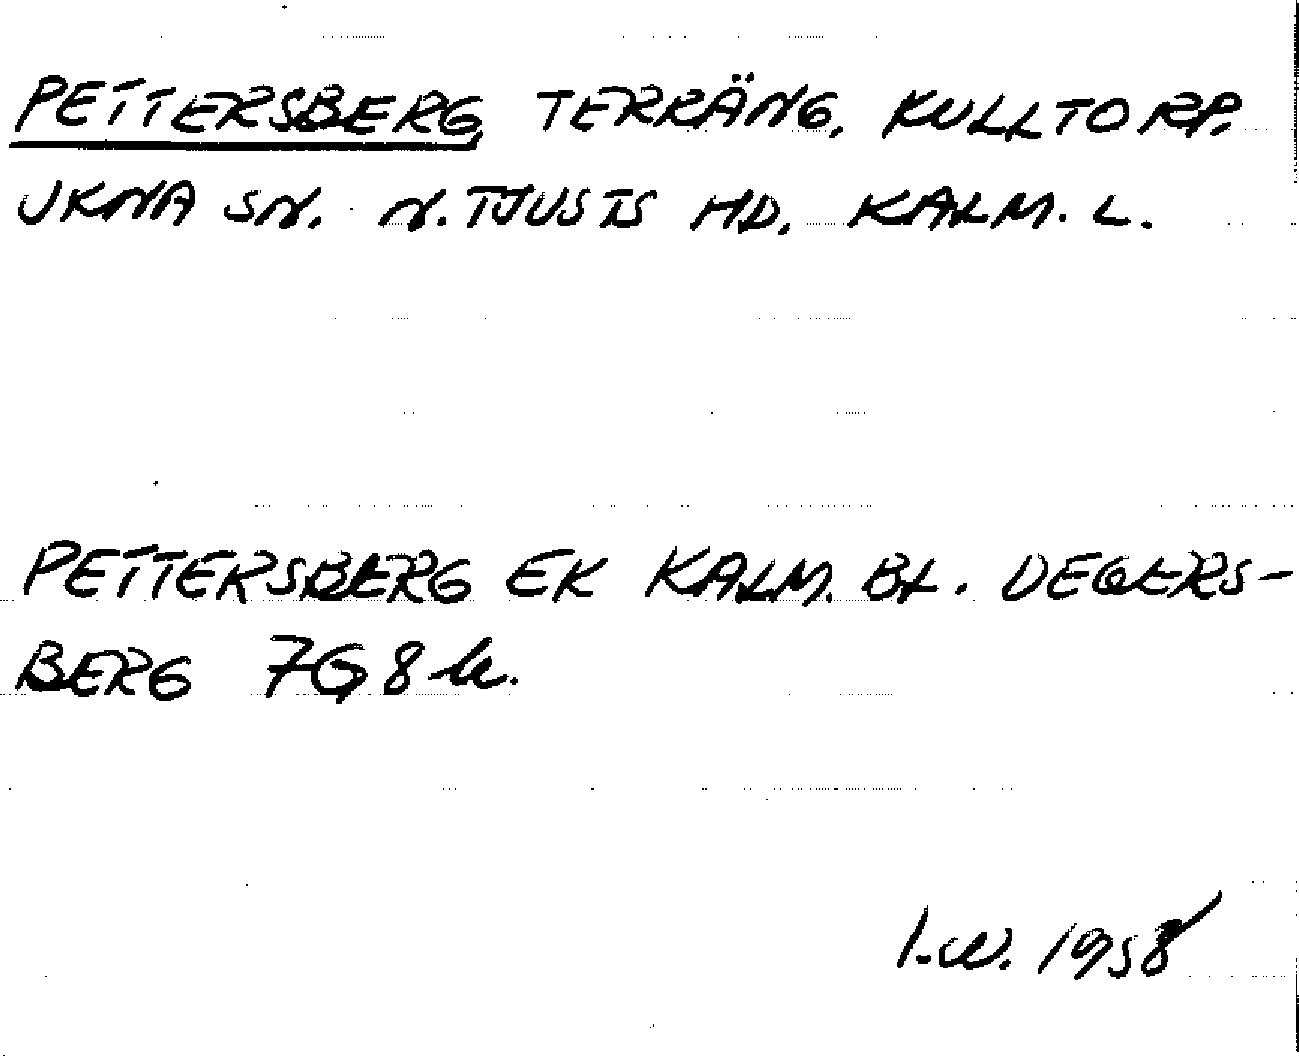 PETTERSBERG, TERRÄNG, KULLTORP,
UKNA SN. N. TJUSTS HD. KALM. L.
PETTERSBERG EK KALM. BL. DEGERS-
BERG 7G8h.
I.W. 1958